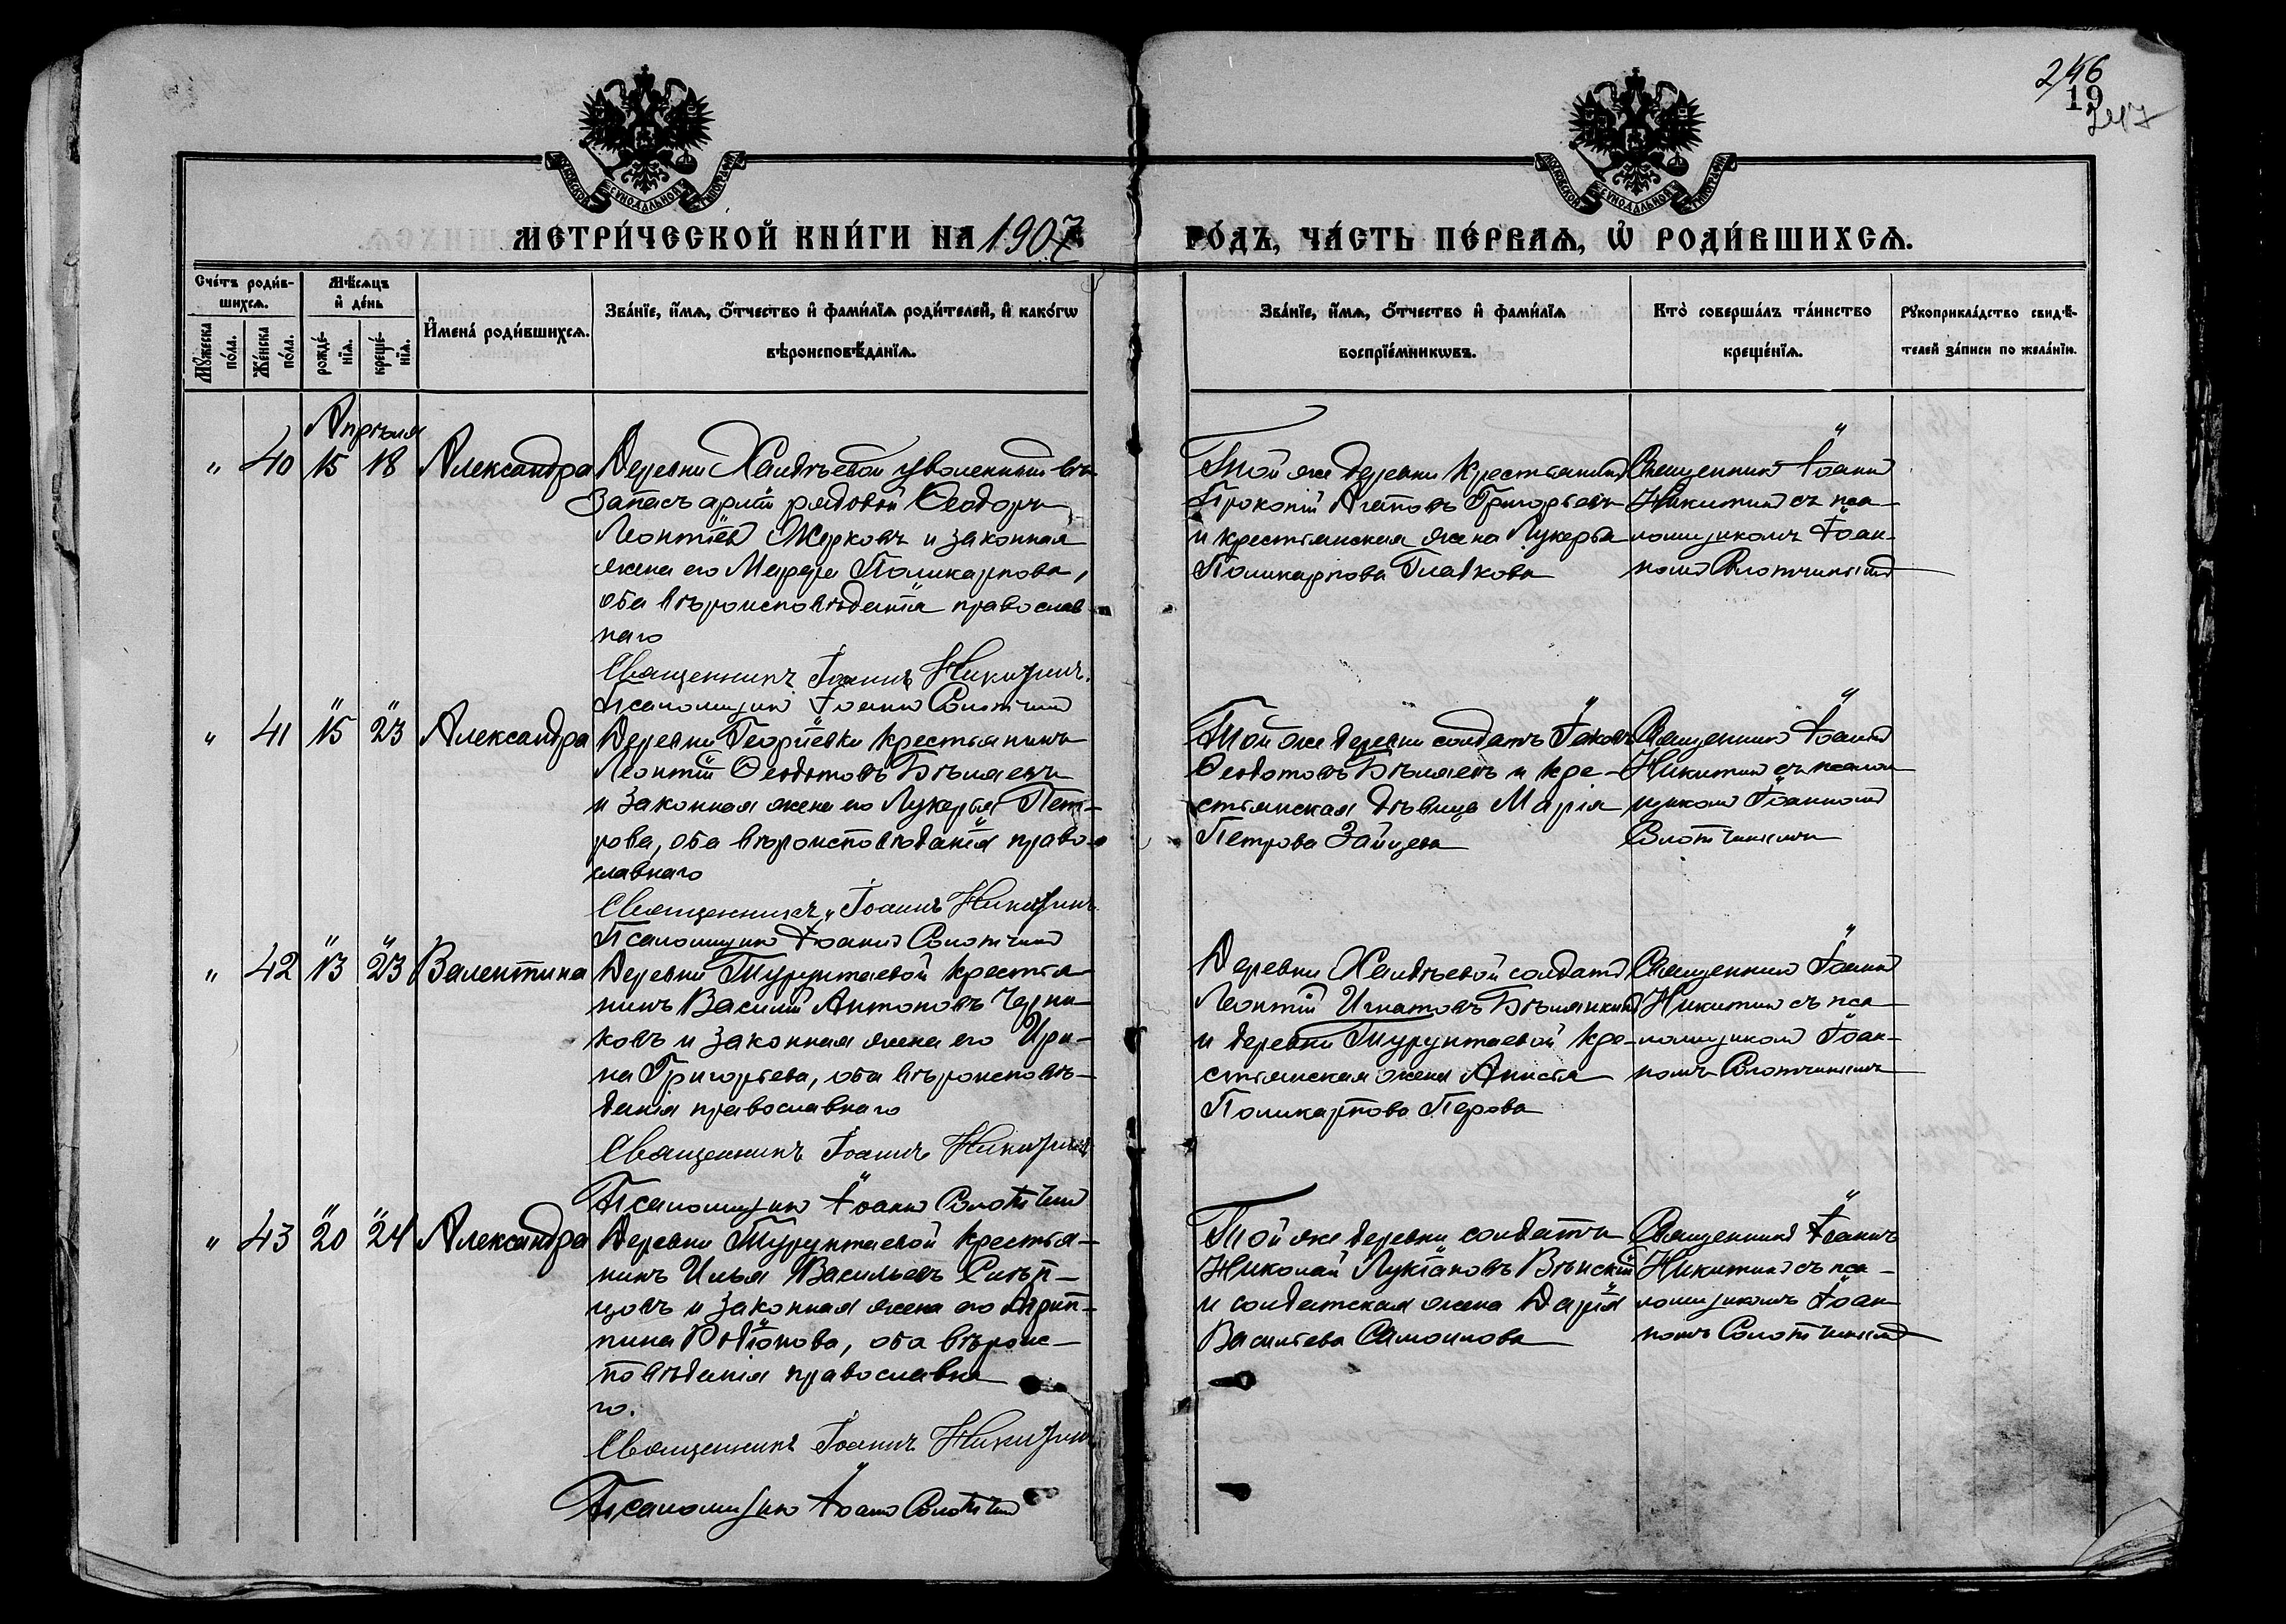 246
19
247
МОСКОВСКОЙ СѴНОДАЛЬНОЙ ТИПОГРАФІИ
МОСКОВСКОЙ СѴНОДАЛЬНОЙ ТИПОГРАФІИ
МЕТРИ́ЧЕСКОЙ КНИ́ГИ НА 1907
ГО́ДЪ, ЧА́СТЬ ПЕ́РВАѦ, Ѡ҆ РОДИ́ВШИХСѦ.
Сче́тъ роди́в-
шихсѧ.
Мꙋ́жеска по́ла.
Же́нска по́ла.
Мѣ́сѧцъ
и҆ де́нь
рожде́-
нїѧ.
креще́-
нїѧ.
И҆мена̀ роди́вшихсѧ.
Зва́нїе, и҆́мѧ, ѻ҆́тчество и҆ фами́лїѧ роди́телей, и҆ како́гѡ
вѣроисповѣ́данїѧ.
Зва́нїе, и҆́мѧ, ѻ҆́тчество и҆ фами́лїѧ
воспрїе́мникѡвъ.
Кто̀ соверша́лъ та́инство
креще́нїѧ.
Рꙋкоприкла́дство свидѣ́-
телей за́писи по жела́нїю.
Апрѣля
" 40 15 18 Александра
Деревни Хандѣевой уволенный въ
запасъ арміи рядовой Ѳеодоръ
Леонтіевъ Жерковъ и законная
жена его Марѳа Поликарпова,
оба вѣроисповѣданія православ
наго
Священникъ Іоаннъ Никитинъ.
Псаломщикъ Іоаннъ Солотчинъ
Той же деревни крестьянинъ
Прокопій Агаповъ Григорьевъ
и крестьянская жена Лукерья
Поликарпова Глазкова
Священникъ Іоаннъ
Никитинъ съ пса-
ломщикомъ Іоан-
номъ Солотчинымъ
" 41 15 23 Александра
Деревни Георгіевки крестьянинъ
Леонтій Ѳедотовъ Бѣляевъ
и законная жена его Лукерья Пет-
рова, оба вѣроисповѣданія право-
славнаго
Священникъ Іоаннъ Никитинъ
Псаломщикъ Іоаннъ Солотчинъ
Той же деревни солдатъ Іаковъ
Ѳедотовъ Бѣляевъ и кре-
стьянская дѣвица Марія
Петрова Зайцева
Священникъ Іоаннъ
Никитинъ съ псалом
щикомъ Іоанномъ
Солотчинымъ
" 42 13 23 Валентина
Деревни Турунтаевой крестья-
нинъ Василій Антоновъ Черни-
ковъ и законная жена его Ири-
на Григорьева, оба вѣроисповѣ-
данія православнаго
Священникъ Іоаннъ Никитинъ
Псаломщикъ Іоаннъ Солотчинъ
Деревни Хандѣевой солдатъ
Леонтій Игнатовъ Бѣлянкинъ
и деревни Турунтаевой кре-
стьянская жена Анисья
Поликарпова Перова
Священникъ Іоаннъ
Никитинъ съ пса-
ломщикомъ Іоан-
номъ Солотчинымъ
" 43 20 24 Александра
Деревни Турунтаевой крестья-
нинъ Илья Васильевъ Слѣп-
цовъ и законная жена его Агрип-
пина Родіонова, оба вѣроис-
повѣданія православна
го.
Священникъ Іоаннъ Никитинъ
Псаломщикъ Іоаннъ Солотчинъ
Той же деревни солдатъ
Николай Лукіановъ Вѣнскій
и солдатская жена Дарія
Васильева Самоилова
Священникъ Іоаннъ
Никитинъ съ пса-
ломщикомъ Іоан
номъ Солотчинымъ